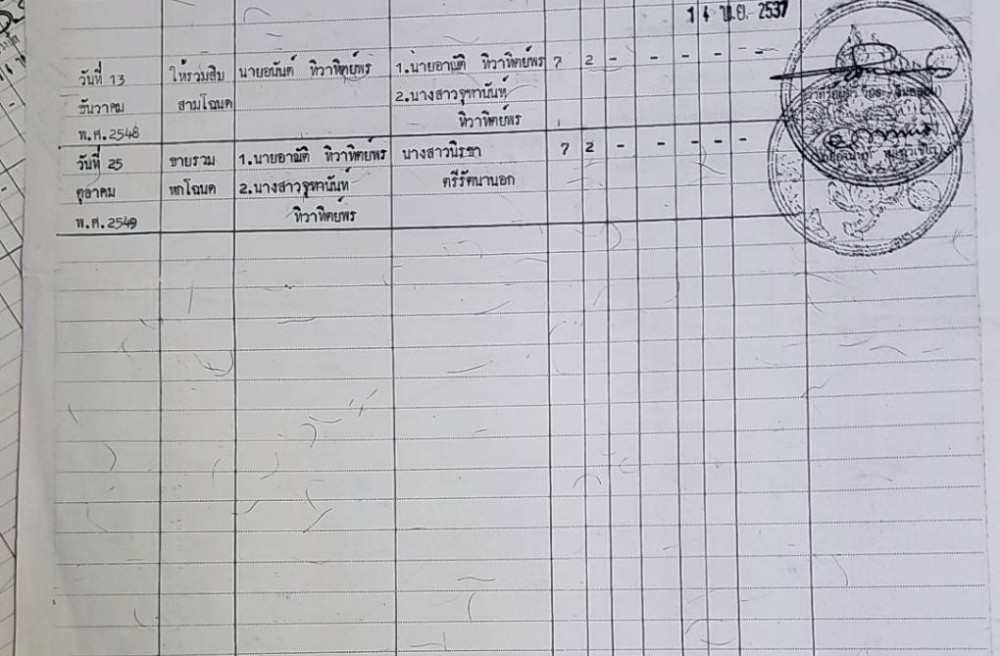 14 พ.ย. 2537
วันที่ 13 ให้รวมสิบ นายอนันต์ ทิวาทิตย์พร 1.นายอาณัติ ทิวาทิตย์พร 7 2 - - - - -
ธันวาคม สามโฉนด 2.นางสาวจุฑานันท์
พ.ศ.2548 ทิวาทิตย์พร
วันที่ 25 ขายรวม 1.นายอาณัติ ทิวาทิตย์พร นางสาวนิรชา 7 2 - - - - -
ตุลาคม หกโฉนด 2.นางสาวจุฑานันท์ ตรีรัตนานอก
พ.ศ.2549 ทิวาทิตย์พร